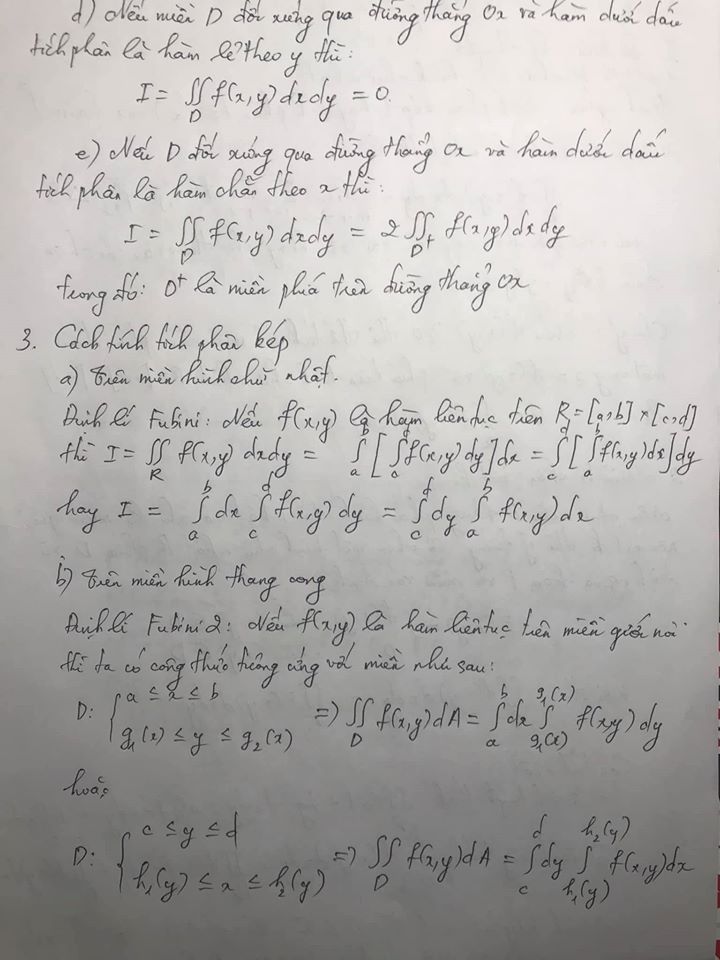 d) Nếu miền D đối xứng qua đường thẳng Ox và hàm dưới dấu
tích phân là hàm lẻ theo y thì:
I = ∬_D f(x,y) dxdy = 0.
e) Nếu D đối xứng qua đường thẳng Ox và hàm dưới dấu
tích phân là hàm chẵn theo x thì:
I = ∬_D f(x,y) dxdy = 2 ∬_{D⁺} f(x,y) dxdy
trong đó: D⁺ là miền phía trên đường thẳng Ox
3. Cách tính tích phân kép
a) Trên miền hình chữ nhật.
Định lí Fubini: Nếu f(x,y) là hàm liên tục trên R = [a,b] × [c,d]
thì I = ∬_R f(x,y) dxdy = ∫_a^b [∫_c^d f(x,y) dy] dx = ∫_c^d [∫_a^b f(x,y) dx] dy
hay I = ∫_a^b dx ∫_c^d f(x,y) dy = ∫_c^d dy ∫_a^b f(x,y) dx
b) Trên miền hình thang cong
Định lí Fubini 2: Nếu f(x,y) là hàm liên tục trên miền giới nội
thì ta có công thức tương ứng với miền như sau:
D: { a ≤ x ≤ b
g₁(x) ≤ y ≤ g₂(x) ⇒ ∬_D f(x,y) dA = ∫_a^b dx ∫_{g₁(x)}^{g₁(x)} f(x,y) dy
hoặc
D: { c ≤ y ≤ d
h₁(y) ≤ x ≤ h₂(y) ⇒ ∬_D f(x,y) dA = ∫_c^d dy ∫_{h₁(y)}^{h₂(y)} f(x,y) dx